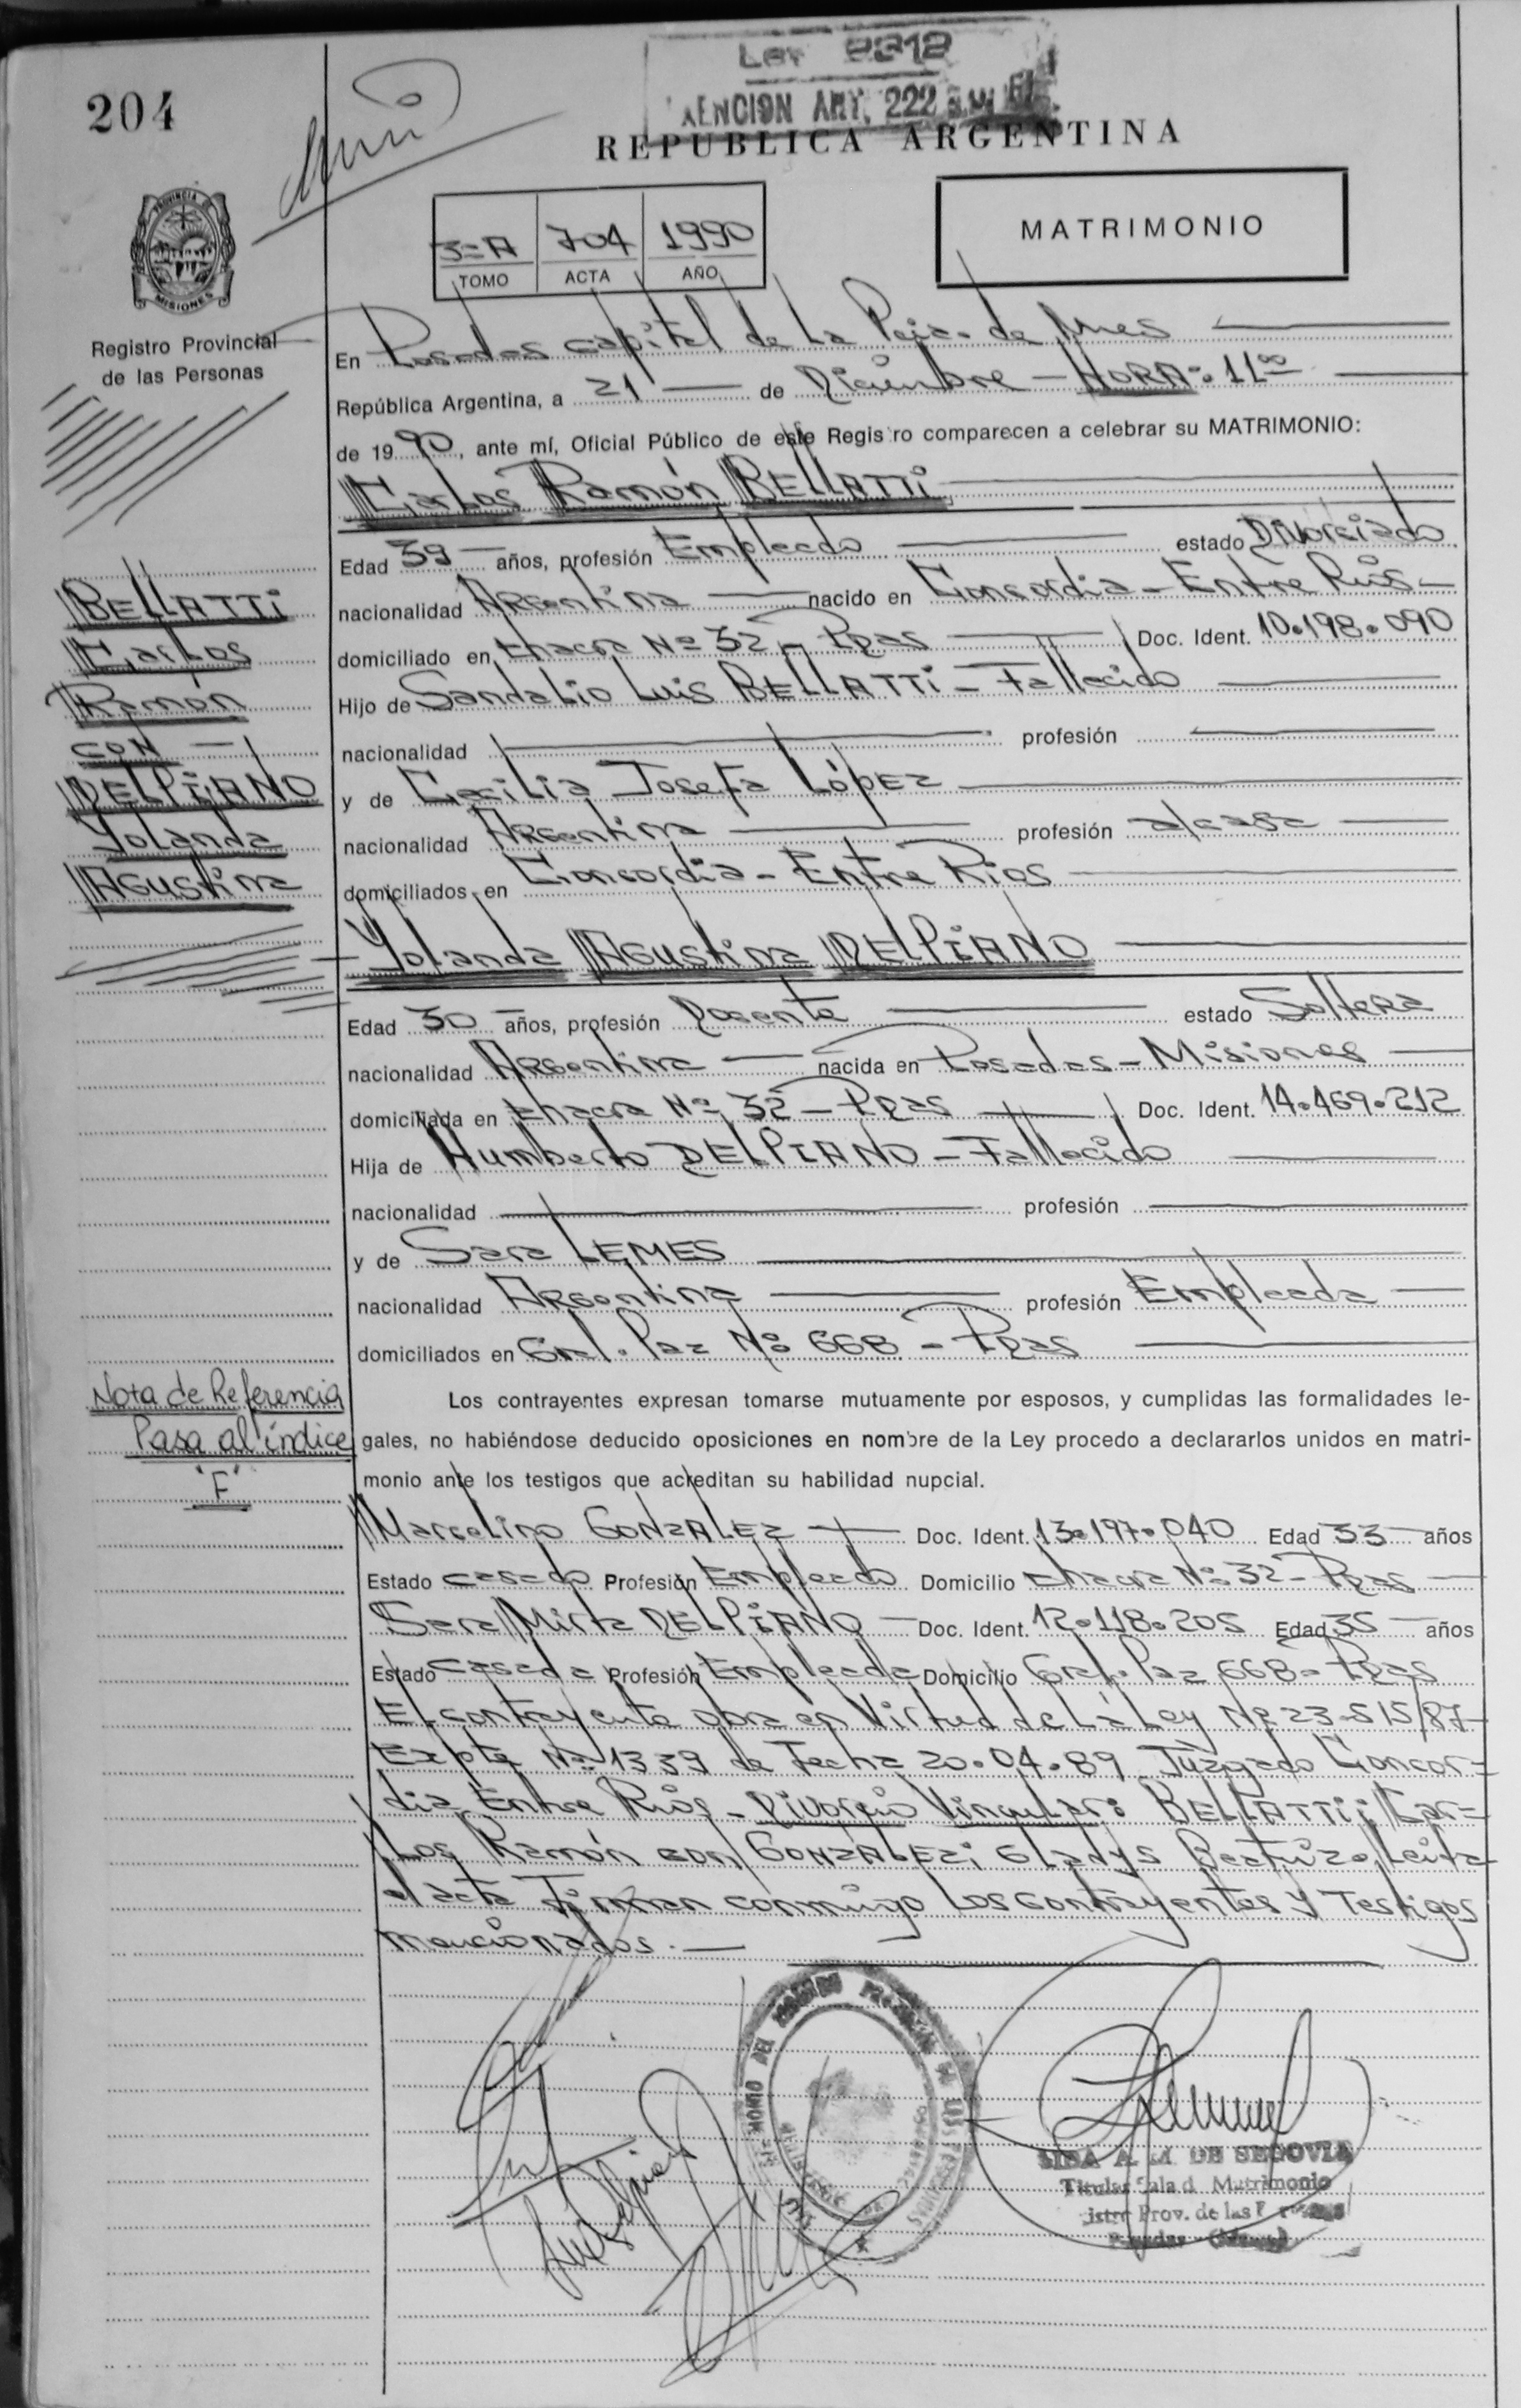 204
Ley 2312
ART. 222
REPUBLICA ARGENTINA
3=A 704 1990
TOMO ACTA AÑO
MATRIMONIO
PROVINCIA D MISIONES
Registro Provincial
de las Personas
En Posadas capital de La Pcia. de Mnes
República Argentina, a 21 de Diciembre - HORA: 11⁰⁰
de 1990, ante mí, Oficial Público de este Registro comparecen a celebrar su MATRIMONIO:
Carlos Ramón BELLATTi
Edad 39 años, profesión Empleado estado Divorciado
nacionalidad Argentina nacido en Concordia - Entre Rios -
domiciliado en chacra Nº 32 - Pdas Doc. Ident. 10.198.090
Hijo de Sandalio Luis BELLATTi - Fallecido
nacionalidad profesión
y de Cecilia Josefa López
nacionalidad Argentina profesión a/casa
domiciliados en Concordia - Entre Rios
Yolanda Agustina DELPiANO
Edad 30 años, profesión Docente estado Soltera
nacionalidad Argentina nacida en Posadas - Misiones
domiciliada en chacra Nº 32 - Pdas Doc. Ident. 14.469.212
Hija de Humberto DELPIANO - Fallecido
nacionalidad profesión
y de Sara LEMES
nacionalidad Argentina profesión Empleada
domiciliados en Gral. Paz Nº 668 - Pdas
BELLATTi
Carlos
Ramón
CON
DELPiANO
Yolanda
Agustina
Nota de Referencia
Pasa al índice
"F"
Los contrayentes expresan tomarse mutuamente por esposos, y cumplidas las formalidades le-
gales, no habiéndose deducido oposiciones en nombre de la Ley procedo a declararlos unidos en matri-
monio ante los testigos que acreditan su habilidad nupcial.
Marcelino GONZALEZ Doc. Ident. 13.197.040 Edad 33 años
Estado casado Profesión Empleado Domicilio chacra Nº 32 - Pdas
Sara Mirta DELPiANO Doc. Ident. 12.118.205 Edad 35 años
Estado casada Profesión Empleada Domicilio Gral. Paz 668 - Pdas
El contrayente obra en Virtud de La Ley Nº 23.515/87
Expte Nº 1339 de Fecha 20.04.89 Juzgado Concor=
dia Entre Rios - Divorcio Vincular: BELLATTi; Car=
Los Ramón con GONZALEZ; Gladys Beatriz. Leida
el acta Firman conmigo Los contrayentes y Testigos
mencionados.
A. M DE SEGOVIA
Titular Sala d Matrimonio
Prov. de las
Posadas